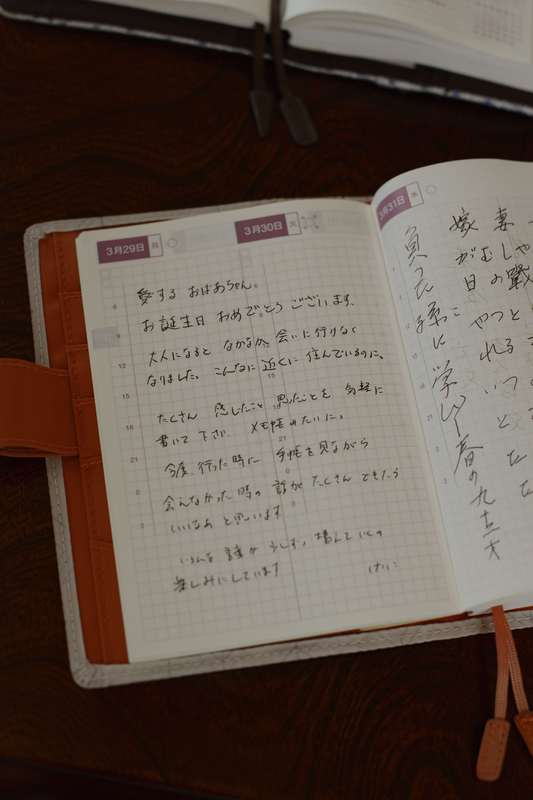 3月29日 月
3月30日 火
愛する おばあちゃん。
お誕生日 おめでとう ございます。
大人になると なかなか 会いに行けなく
なりました。こんなに 近くに 住んでいるのに、
たくさん 感じたこと 思ったことを 気軽に
書いて下さい メモ帳みたいに。
今度 行った時に 手帳を見ながら
会えなかった時の 話が たくさん できたら
いいなあ と思います
いろんな 話が
楽しみにしています
けいこ
3月31日 水
負うた孫に 学びし 春の九十二才